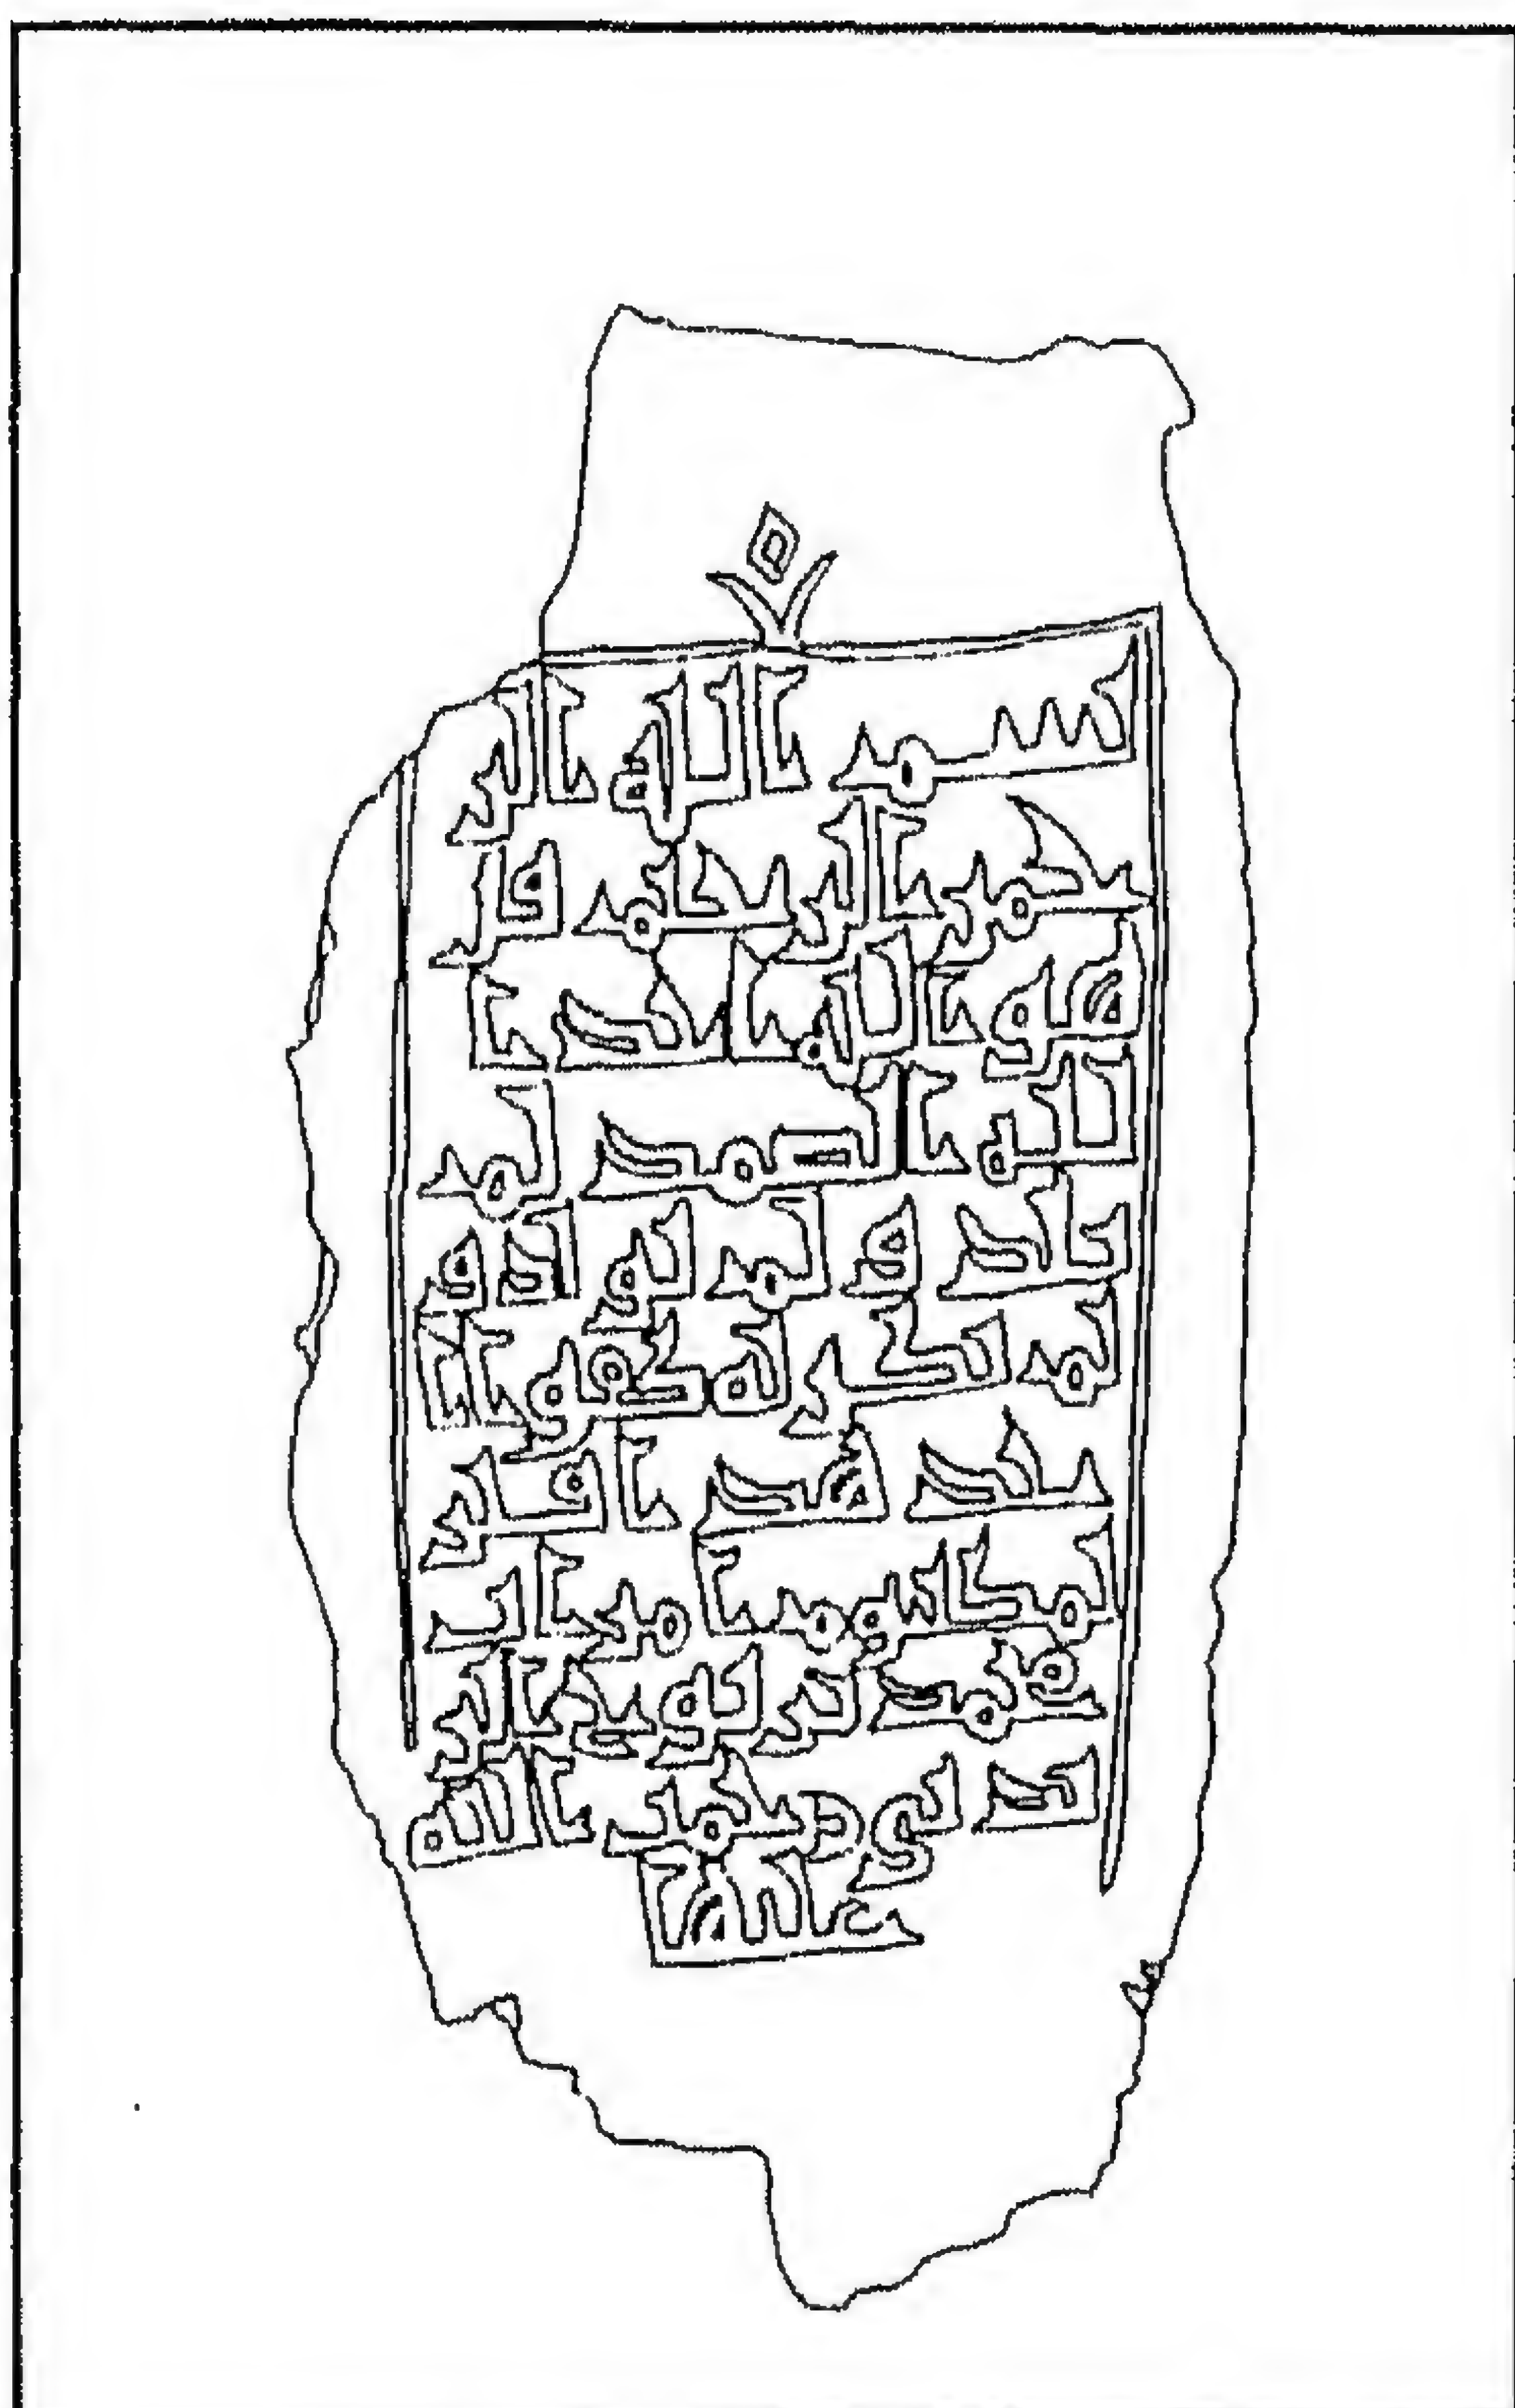 بسم الله الر
حمن الرحيم قل
هو الله احد ا
لله الصمد لم
يلد و لم يولد و
لم يكن له كفوا ا
حد هذا قبر
محمد بن
رحمت الله
عليها